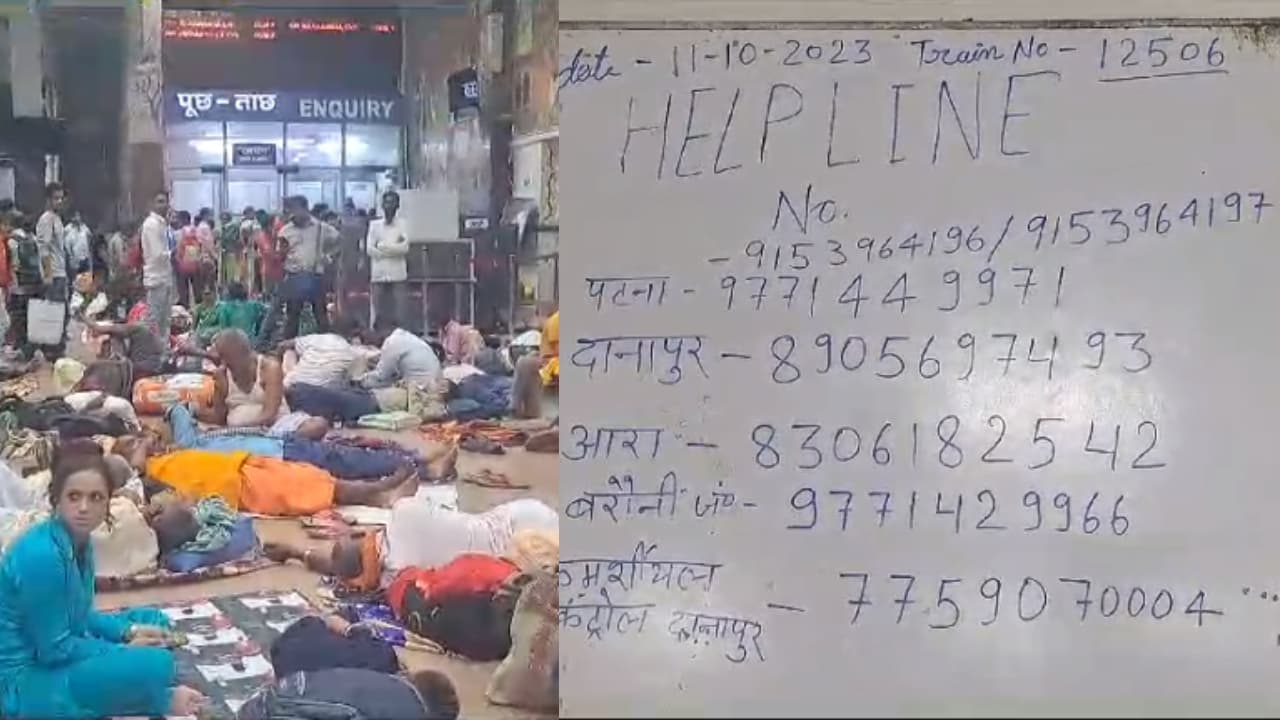 पूछ-ताछ ENQUIRY
date - 11-10-2023 Train No - 12506
HELPLINE
No.
- 9153964196/9153964197
पटना - 9771449971
दानापुर - 8905697493
आरा - 8306182542
बरौनी जं॰ - 9771429966
कमर्शीयल
कंट्रोल दानापुर - 7759070004